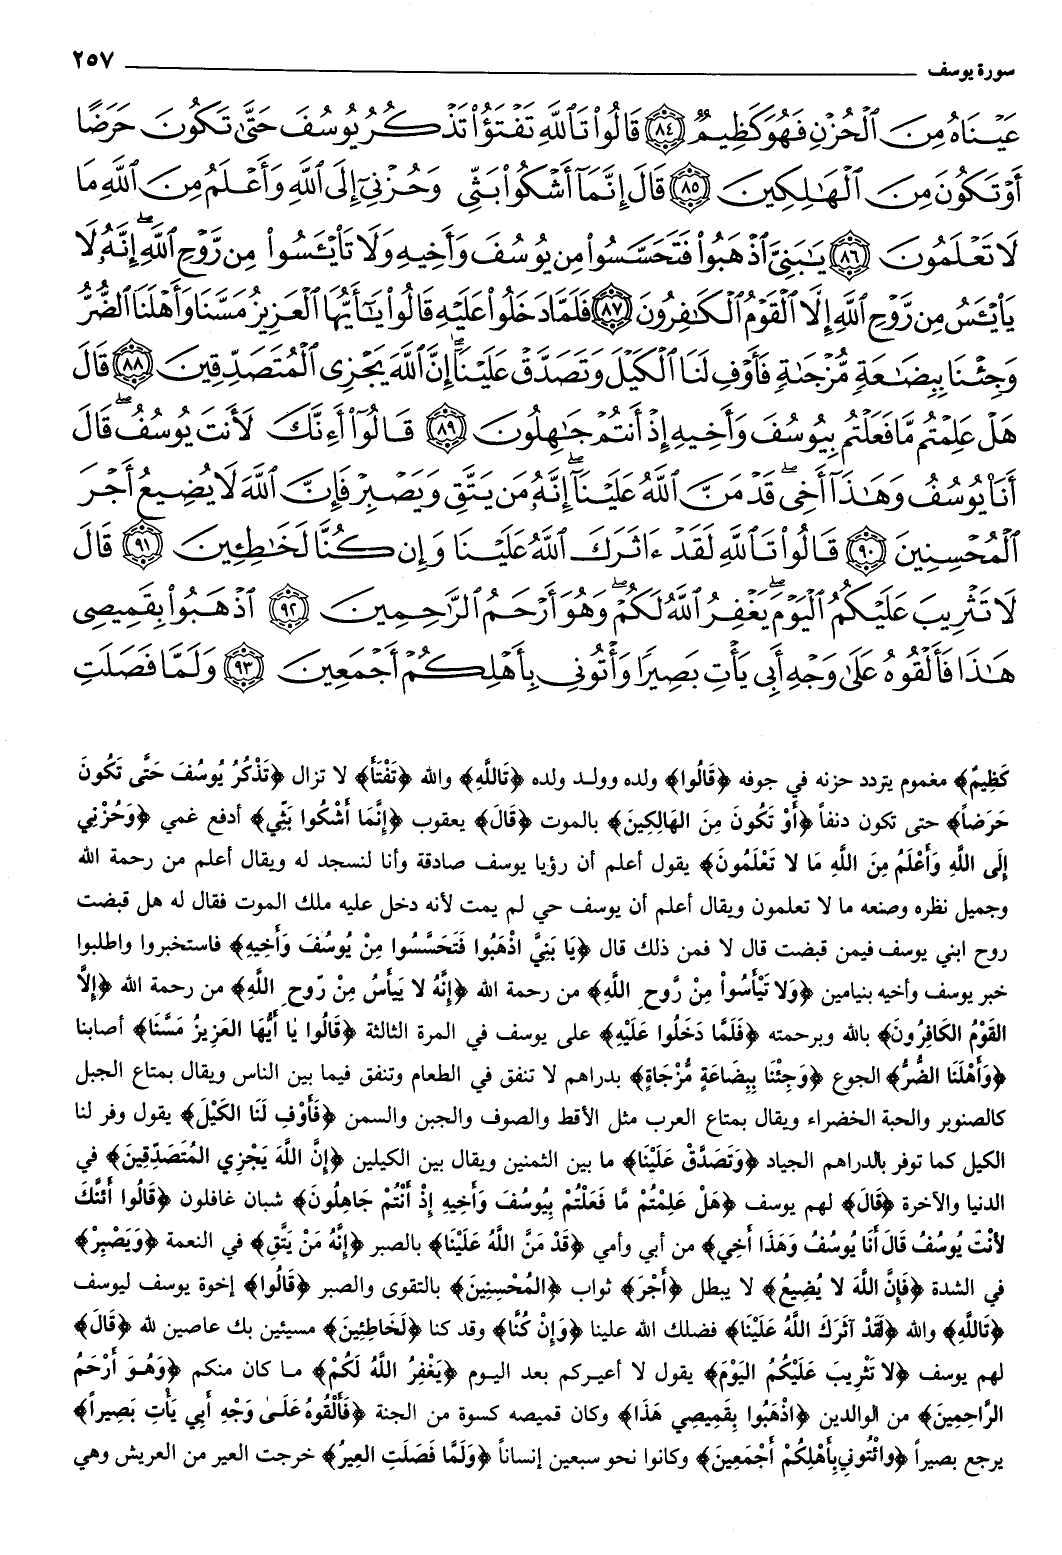 سورة يوسف ٢٥٧
عَيْنَاهُ مِنَ ٱلْحُزْنِ فَهُوَ كَظِيمٌ ﴿٨٤﴾ قَالُوا۟ تَٱللَّهِ تَفْتَؤُا۟ تَذْكُرُ يُوسُفَ حَتَّىٰ تَكُونَ حَرَضًا
أَوْ تَكُونَ مِنَ ٱلْهَـٰلِكِينَ ﴿٨٥﴾ قَالَ إِنَّمَآ أَشْكُوا۟ بَثِّى وَحُزْنِىٓ إِلَى ٱللَّهِ وَأَعْلَمُ مِنَ ٱللَّهِ مَا
لَا تَعْلَمُونَ ﴿٨٦﴾ يَـٰبَنِىَّ ٱذْهَبُوا۟ فَتَحَسَّسُوا۟ مِن يُوسُفَ وَأَخِيهِ وَلَا تَا۟يْـَٔسُوا۟ مِن رَّوْحِ ٱللَّهِ ۖ إِنَّهُۥ لَا
يَا۟يْـَٔسُ مِن رَّوْحِ ٱللَّهِ إِلَّا ٱلْقَوْمُ ٱلْكَـٰفِرُونَ ﴿٨٧﴾ فَلَمَّا دَخَلُوا۟ عَلَيْهِ قَالُوا۟ يَـٰٓأَيُّهَا ٱلْعَزِيزُ مَسَّنَا وَأَهْلَنَا ٱلضُّرُّ
وَجِئْنَا بِبِضَـٰعَةٍ مُّزْجَىٰةٍ فَأَوْفِ لَنَا ٱلْكَيْلَ وَتَصَدَّقْ عَلَيْنَآ ۖ إِنَّ ٱللَّهَ يَجْزِى ٱلْمُتَصَدِّقِينَ ﴿٨٨﴾ قَالَ
هَلْ عَلِمْتُم مَّا فَعَلْتُم بِيُوسُفَ وَأَخِيهِ إِذْ أَنتُمْ جَـٰهِلُونَ ﴿٨٩﴾ قَالُوٓا۟ أَءِنَّكَ لَأَنتَ يُوسُفُ ۖ قَالَ
أَنَا۠ يُوسُفُ وَهَـٰذَآ أَخِى ۖ قَدْ مَنَّ ٱللَّهُ عَلَيْنَآ ۖ إِنَّهُۥ مَن يَتَّقِ وَيَصْبِرْ فَإِنَّ ٱللَّهَ لَا يُضِيعُ أَجْرَ
ٱلْمُحْسِنِينَ ﴿٩٠﴾ قَالُوا۟ تَٱللَّهِ لَقَدْ ءَاثَرَكَ ٱللَّهُ عَلَيْنَا وَإِن كُنَّا لَخَـٰطِـِٔينَ ﴿٩١﴾ قَالَ
لَا تَثْرِيبَ عَلَيْكُمُ ٱلْيَوْمَ ۖ يَغْفِرُ ٱللَّهُ لَكُمْ ۖ وَهُوَ أَرْحَمُ ٱلرَّٰحِمِينَ ﴿٩٢﴾ ٱذْهَبُوا۟ بِقَمِيصِى
هَـٰذَا فَأَلْقُوهُ عَلَىٰ وَجْهِ أَبِى يَأْتِ بَصِيرًا وَأْتُونِى بِأَهْلِكُمْ أَجْمَعِينَ ﴿٩٣﴾ وَلَمَّا فَصَلَتِ
كَظِيمٌ﴾ مغموم يتردد حزنه في جوفه ﴿قَالُوا﴾ ولده وولد ولده ﴿تَاللَّهِ﴾ والله ﴿تَفْتَأُ﴾ لا تزال ﴿تَذْكُرُ يُوسُفَ حَتَّى تَكُونَ
حَرَضاً﴾ حتى تكون دنفاً ﴿أَوْ تَكُونَ مِنَ الهَالِكِينَ﴾ بالموت ﴿قَالَ﴾ يعقوب ﴿إِنَّمَا أَشْكُوا بَثِّي﴾ أدفع غمي ﴿وَحُزْنِي
إِلَى اللَّهِ وَأَعْلَمُ مِنَ اللَّهِ مَا لا تَعْلَمُونَ﴾ يقول أعلم أن رؤيا يوسف صادقة وأنا لنسجد له ويقال أعلم من رحمة الله
وجميل نظره وصنعه ما لا تعلمون ويقال أعلم أن يوسف حي لم يمت لأنه دخل عليه ملك الموت فقال له هل قبضت
روح ابني يوسف فيمن قبضت قال لا فمن ذلك قال ﴿يَا بَنِيَّ اذْهَبُوا فَتَحَسَّسُوا مِنْ يُوسُفَ وَأَخِيهِ﴾ فاستخبروا واطلبوا
خبر يوسف وأخيه بنيامين ﴿وَلا تَيْأَسُوا مِنْ رَّوحِ اللَّهِ﴾ من رحمة الله ﴿إِنَّهُ لا يَيأَسُ مِنْ رّوحِ اللَّهِ﴾ من رحمة الله ﴿إِلاَّ
القَوْمُ الكَافِرُونَ﴾ بالله وبرحمته ﴿فَلَمَّا دَخَلُوا عَلَيْهِ﴾ على يوسف في المرة الثالثة ﴿قَالُوا يَا أَيُّهَا العَزِيزُ مَسَّنَا﴾ أصابنا
﴿وَأَهْلَنَا الضُّرُّ﴾ الجوع ﴿وَجِئْنَا بِبِضَاعَةٍ مُزْجَاةٍ﴾ بدراهم لا تنفق في الطعام وتنفق فيما بين الناس ويقال بمتاع الجبل
كالصنوبر والحبة الخضراء ويقال بمتاع العرب مثل الأقط والصوف والجبن والسمن ﴿فَأَوْفِ لَنَا الكَيْلَ﴾ يقول وفر لنا
الكيل كما توفر بالدراهم الجياد ﴿وَتَصَدَّقْ عَلَيْنَا﴾ ما بين الثمنين ويقال بين الكيلين ﴿إِنَّ اللَّهَ يَجْزِي المُتَصَدِّقِينَ﴾ في
الدنيا والآخرة ﴿قَالَ﴾ لهم يوسف ﴿هَلْ عَلِمْتُمْ مَّا فَعَلْتُمْ بِيُوسُفَ وَأَخِيهِ إِذْ أَنْتُمْ جَاهِلُونَ﴾ شبان غافلون ﴿قَالُوا أَئِنَّكَ
لأنْتَ يُوسُفُ قَالَ أَنَا يُوسُفُ وَهَذَا أَخِي﴾ من أبي وأمي ﴿قَدْ مَنَّ اللَّهُ عَلَيْنَا﴾ بالصبر ﴿إِنَّهُ مَنْ يَتَّقِ﴾ في النعمة ﴿وَيَصْبِرْ﴾
في الشدة ﴿فَإِنَّ اللَّهَ لا يُضِيعُ﴾ لا يبطل ﴿أَجْرَ﴾ ثواب ﴿المُحْسِنِينَ﴾ بالتقوى والصبر ﴿قَالُوا﴾ إخوة يوسف ليوسف
﴿تَاللَّهِ﴾ والله ﴿لَقَدْ آثَرَكَ اللَّهُ عَلَيْنَا﴾ فضلك الله علينا ﴿وَإِنْ كُنَّا﴾ وقد كنا ﴿لَخَاطِئِينَ﴾ مسيئين بك عاصين لله ﴿قَالَ﴾
لهم يوسف ﴿لا تَثْرِيبَ عَلَيْكُمُ اليَوْمَ﴾ يقول لا أعيركم بعد اليوم ﴿يَغْفِرُ اللَّهُ لَكُمْ﴾ ما كان منكم ﴿وَهُوَ أَرْحَمُ
الرَّاحِمِينَ﴾ من الوالدين ﴿اذْهَبُوا بِقَمِيصِي هَذَا﴾ وكان قميصه كسوة من الجنة ﴿فَأَلْقُوهُ عَلَى وَجْهِ أَبِي يَأْتِ بَصِيراً﴾
يرجع بصيراً ﴿وائْتُونِي بِأَهْلِكُمْ أَجْمَعِينَ﴾ وكانوا نحو سبعين إنساناً ﴿وَلَمَّا فَصَلَتِ العِيرُ﴾ خرجت العير من العريش وهي